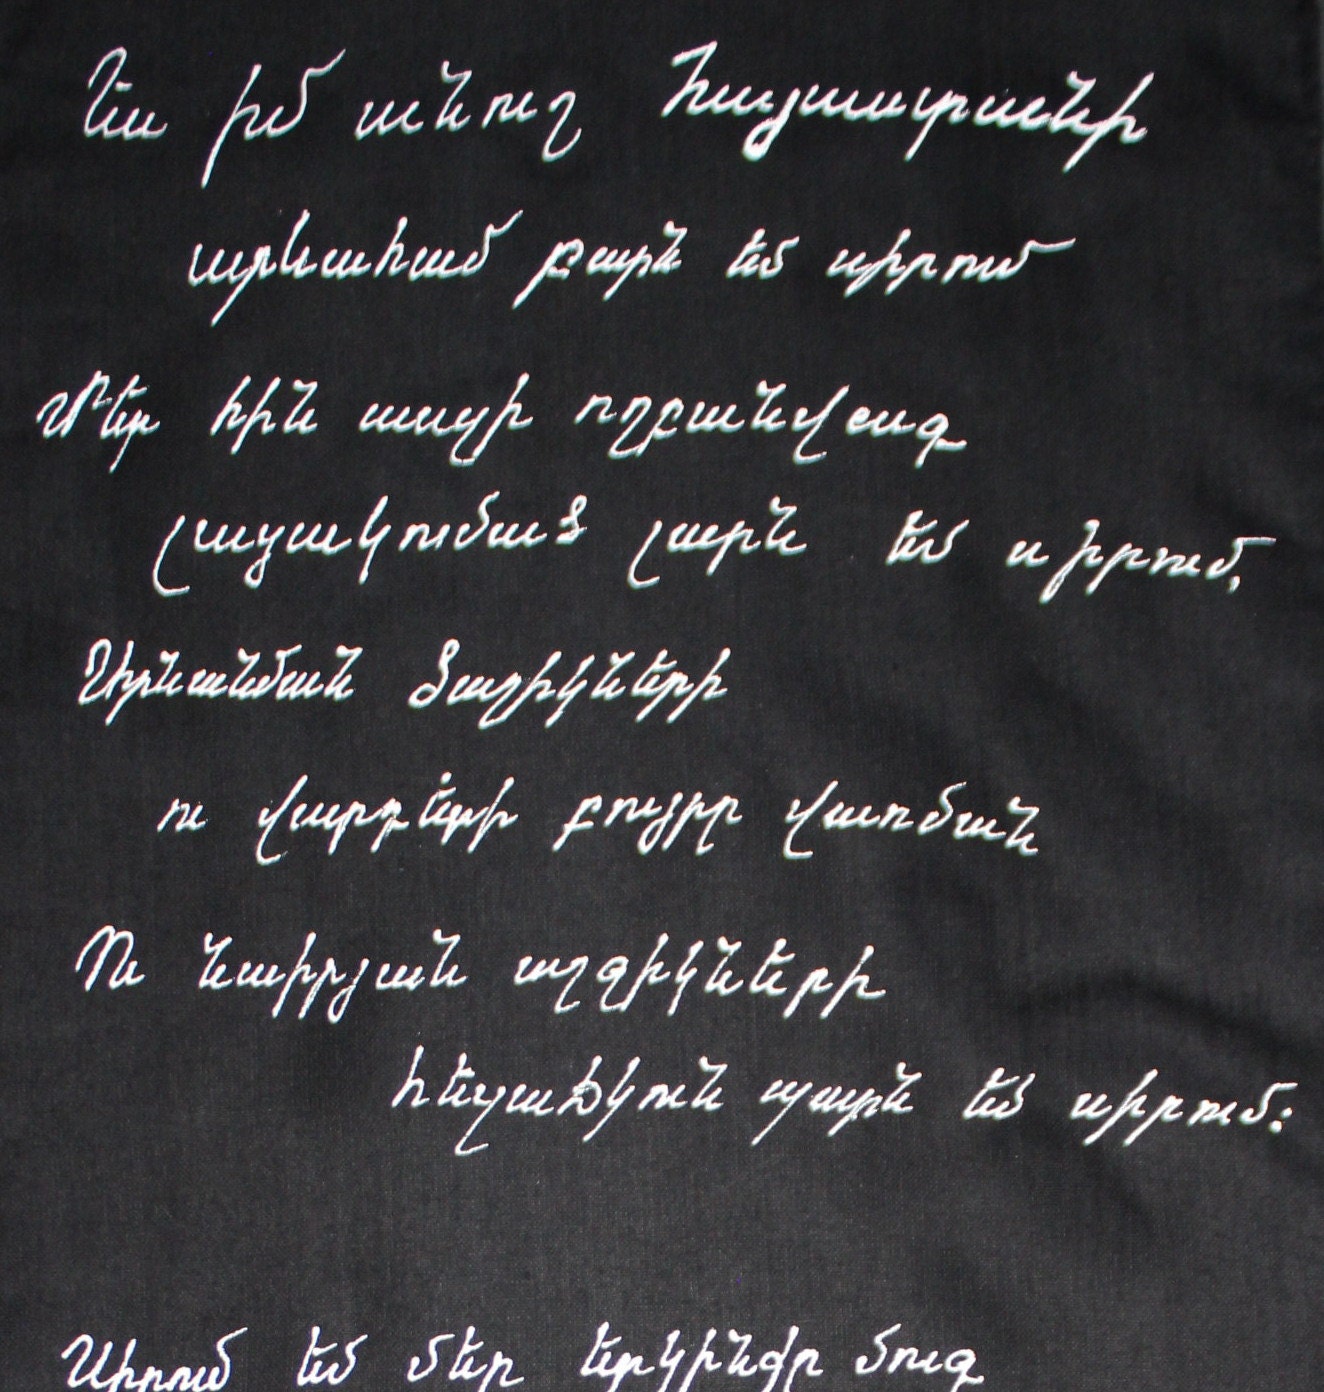 Ես իմ անուշ Հայաստանի
արևահամ բարն եմ սիրում
Մեր հին սազի ողբանվագ
լացակումած լարն եմ սիրում,
Արնանման ծաղիկների
ու վարդերի բույրը վառման
Ու նաիրյան աղջիկների
հեզաճկուն պարն եմ սիրում:
Սիրում եմ մեր երկինքը մուգ